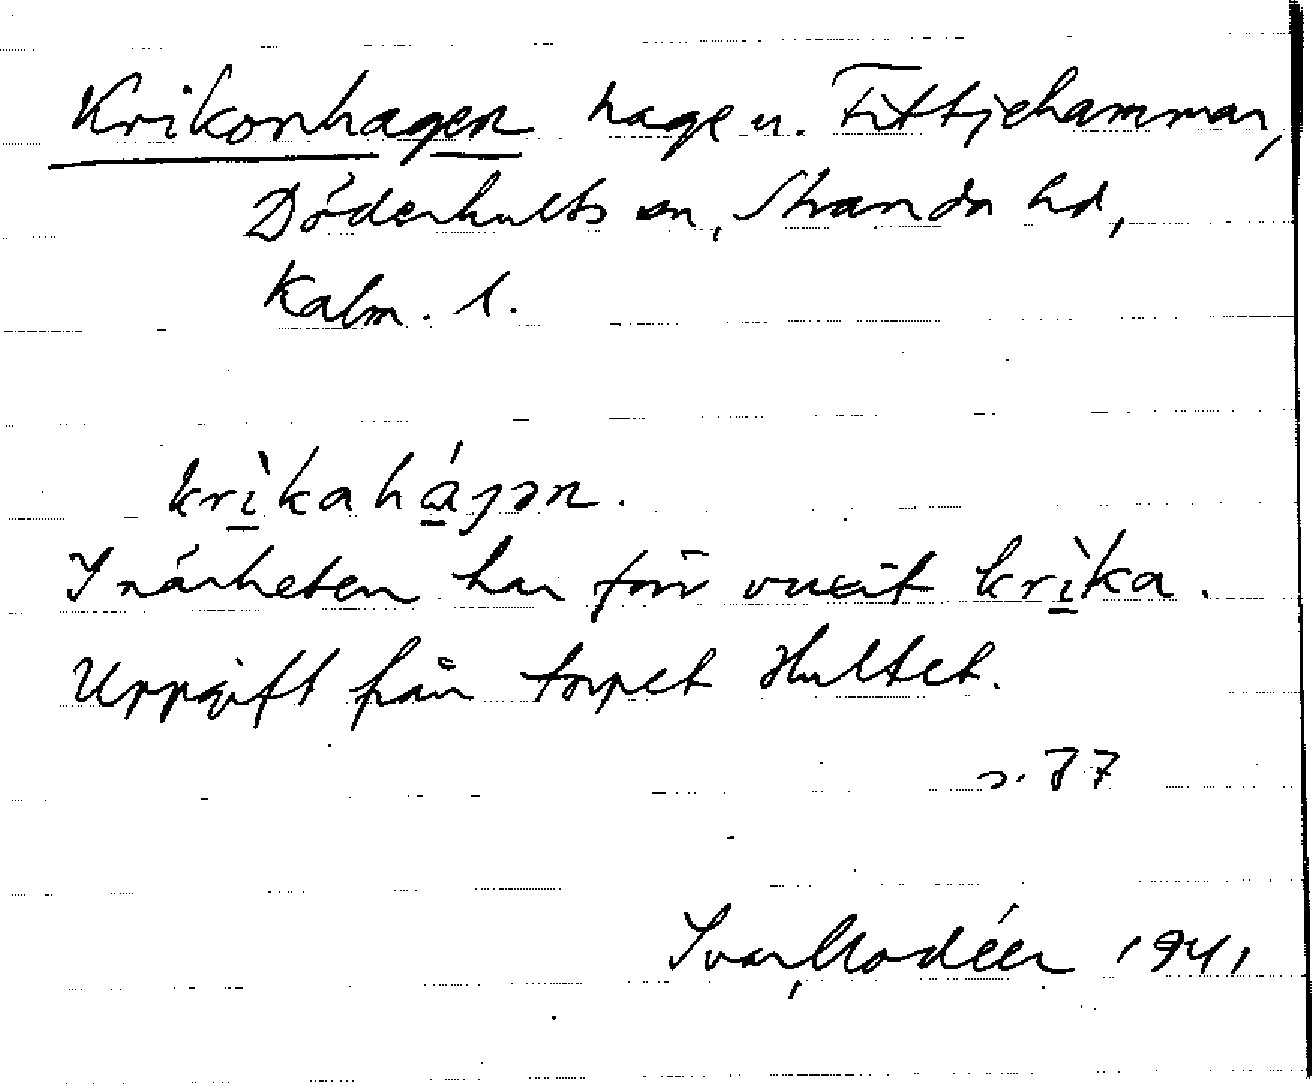 Krikonhagen hage u. Fittjehammar,
Döderhults sn, Stranda hd,
Kalm. l.
krìkahágən.
I närheten har förr vuxit krìka.
Uppgift från torpet Hultet.
s. 77
Ivar Modéer 1941